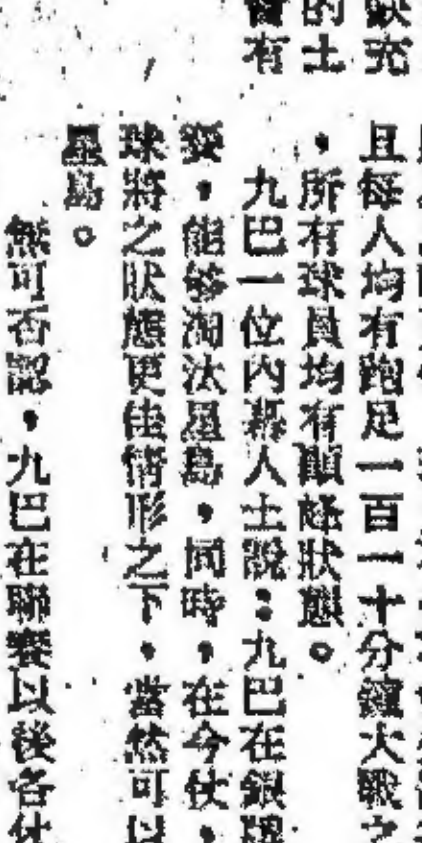 缺充
的土
有
且每人均有跑足一百一十分鐘大戰之
，所有球員均有顚峰狀態。
九巴一位內幕人士說：九巴在銀牌
賽，能够淘汰星島，同時，在今仗，
球將之狀態更佳情形之下，當然可以
星島。
無可否認，九巴在聯賽以後各仗